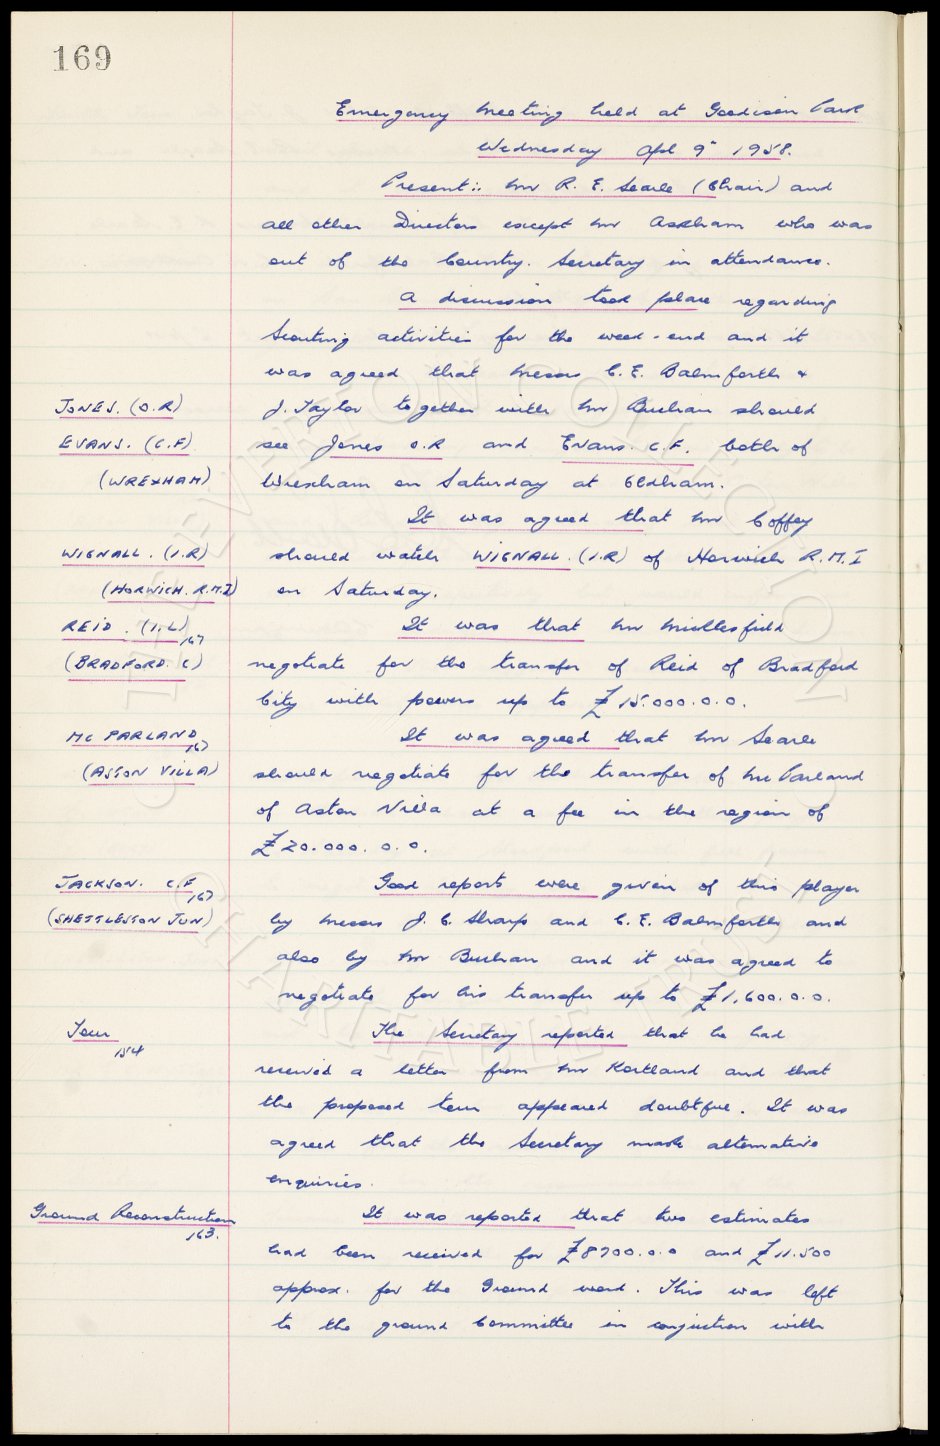 169
Emergency Meeting held at Goodison Park
Wednesday Apl 9th 1958.
Present:: Mr R. E. Searle (Chair) and
all other Directors except Mr Askham who was
out of the Country. Secretary in attendance.
A discussion took place regarding
Scouting activities for the week-end and it
was agreed that Messrs C. E. Balmforth &
JONES. (O.R) J. Taylor together with Mr Buchan should
EVANS. (C.F) see Jones O.R and Evans. C.F. both of
(WREXHAM) Wrexham on Saturday at Oldham.
It was agreed that Mr Coffey
WIGNALL. (I.R) should watch WIGNALL. (I.R) of Horwich R.M.I
(HORWICH. R.M.I) on Saturday.
REID. (I.L) 167 It was that Mr Micklesfield
(BRADFORD. C) negotiate for the transfer of Reid of Bradford
City with powers up to £15.000.0.0.
MC PARLAND 167 It was agreed that Mr Searle
(ASTON VILLA) should negotiate for the transfer of McParland
of Aston Villa at a fee in the region of
£20.000.0.0.
JACKSON. C.F 167 Good reports were given of this player
(SHETTLESTON JUN) by Messrs J. C. Sharp and C. E. Balmforth and
also by Mr Buchan and it was agreed to
negotiate for his transfer up to £1,600.0.0.
Tour 154 The Secretary reported that he had
received a letter from Mr Kortland and that
the proposed tour appeared doubtful. It was
agreed that the Secretary make alternative
enquiries.
Ground Reconstruction 163. It was reported that two estimates
had been received for £8700.0.0 and £11.500
approx. for the Ground work. This was left
to the ground Committee in conjuction with
THE EVERTON COLLECTION
CHARITABLE TRUST